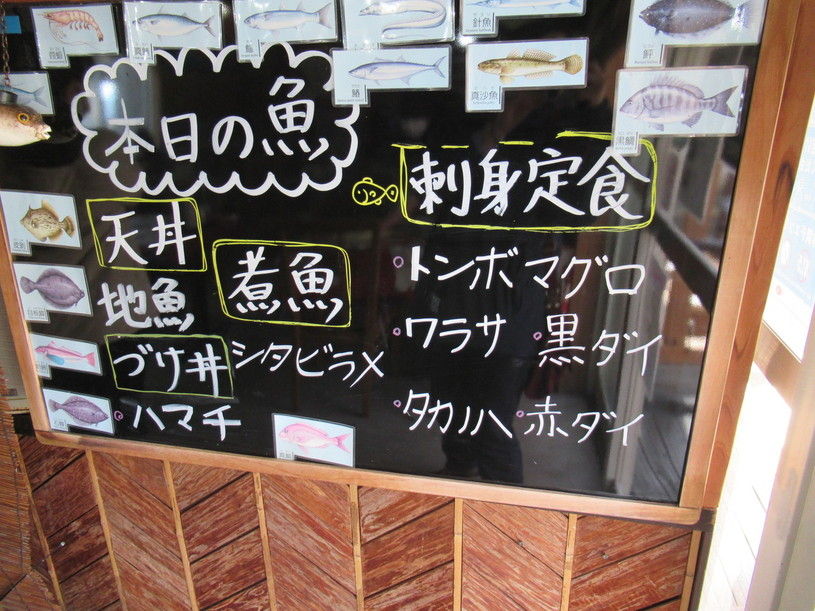 本日の魚
刺身定食
トンボマグロ
ワラサ 黒ダイ
タカノハ 赤ダイ
天丼
地魚
煮魚
シタビラメ
づけ丼
ハマチ
真沙魚
黒鯛